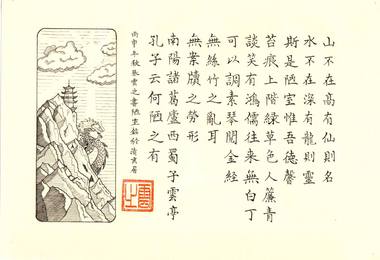 山不在高有仙則名
水不在深有龍則靈
斯是陋室惟吾德馨
苔痕上階綠草色入簾青
談笑有鴻儒往来無白丁
可以調素琴閱金經
無絲竹之亂耳
無案牘之勞形
南陽諸葛廬西蜀子雲亭
孔子云何陋之有
丙申年秋雲之書陋室銘於清居
雲之